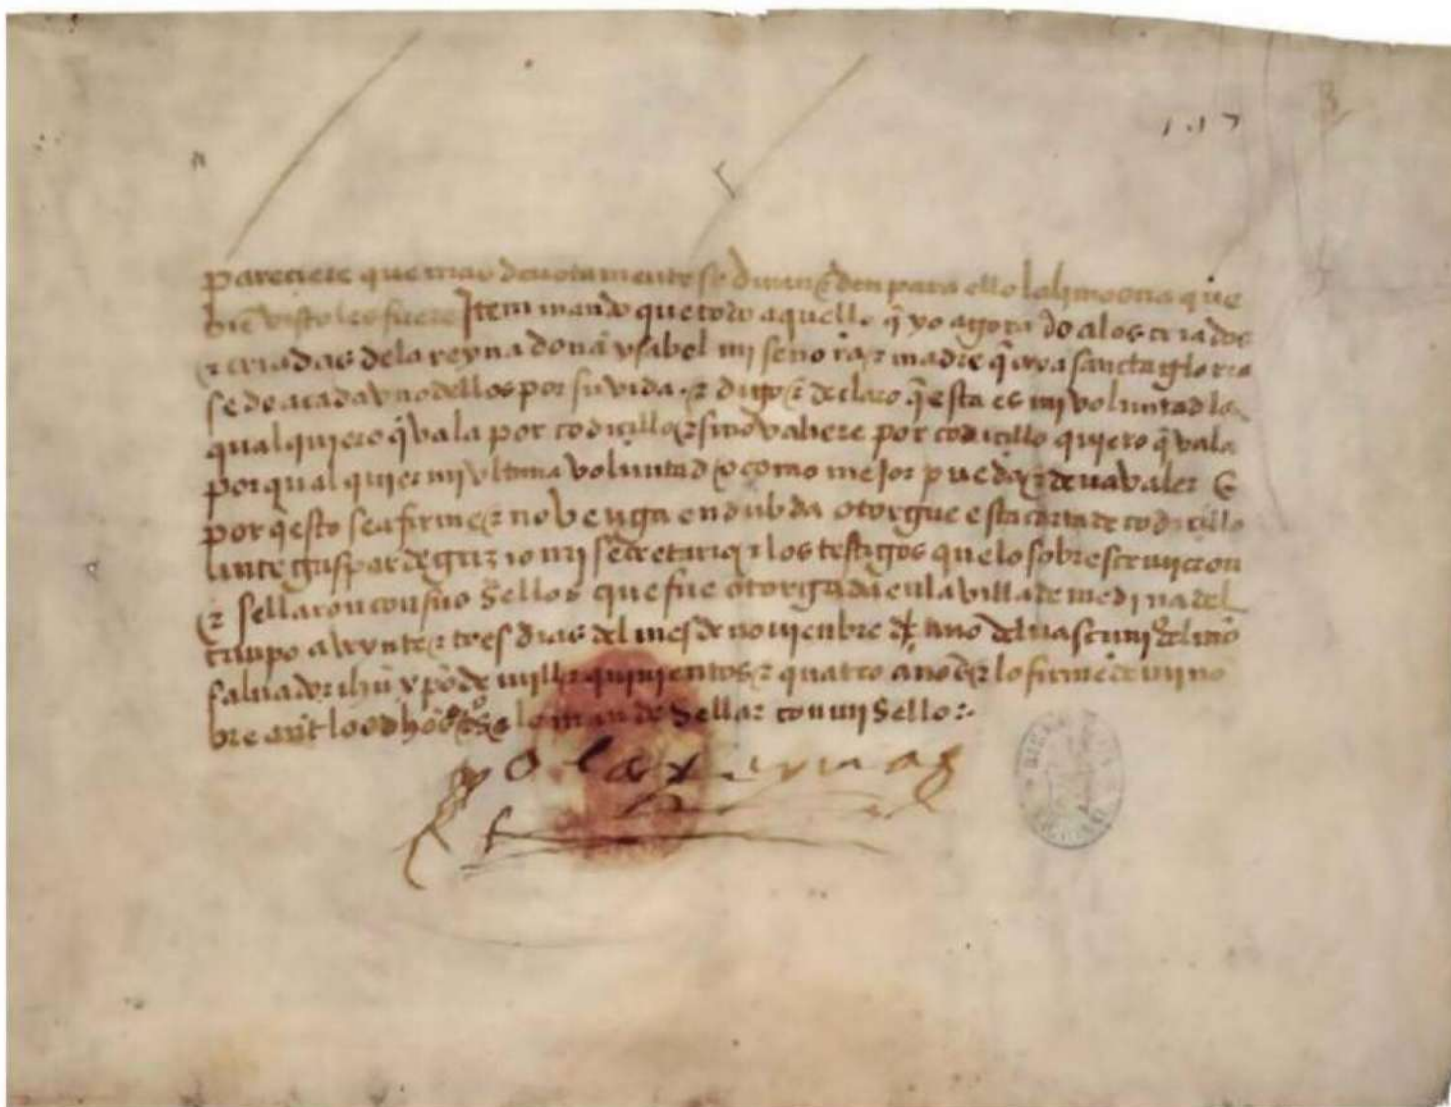 pareciere que mas devotamente se diran ⁊ den para ello la limosna que
biē visto les fuere Item mando que todo aquello q̄ yo agora do a los criados
⁊ criadas de la reyna doña ysabel mi señora ⁊ madre q̄ aya sancta gloria
se do a cada vno dellos por su vida. ⁊ digo ⁊ declaro q̄ esta es mi voluntad lo
qual quiero q̄ vala por codicillo ⁊ si no valiere por codicillo quiero q̄ vala
por qualquier mi vltima voluntad o como mejor pueda ⁊ deua valer E
por q̄ esto sea firme ⁊ no venga en dubda otorgue esta carta de codicillo
ante gaspar de grizio mi secretario ⁊ los testigos que lo sobrescriuieron
⁊ sellaron con sus sellos que fue otorgada en la villa de medina del
campo a veynte ⁊ tres dias del mes de nouienbre año del nascimiº del nr̄o
saluador ihū xp̄o de mill ⁊ quinientos ⁊ quatro años ⁊ lo firme de mi nō
bre ant̄ los dhōs tºs ⁊ lo mande sellar con mi sello:.
yo la reyna